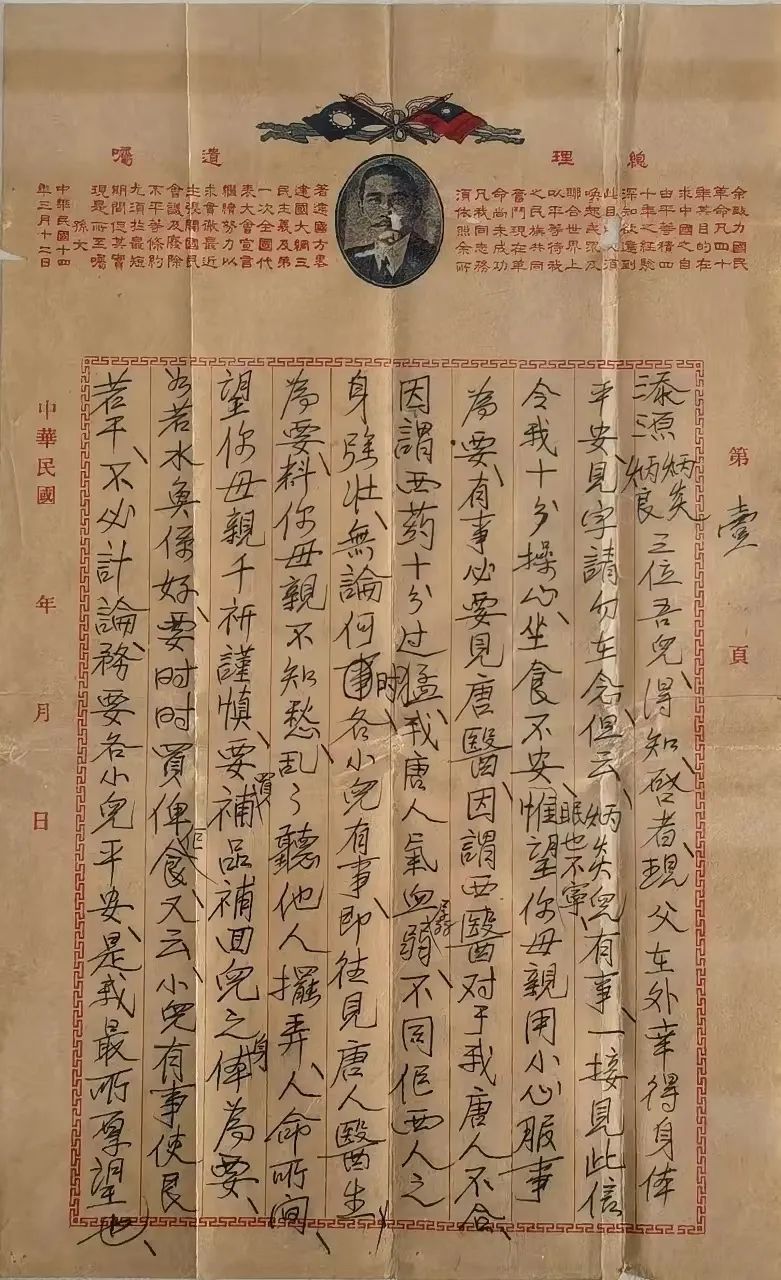 總理遺囑
余致力國民
革命凡四十
年其目的在
求中國之自
由平等積四
十年之經驗
深知欲達到
此目的必須
喚起民眾及
聯合世界上
以平等待我
之民族共同
奮鬥現在革
命尚未成功
凡我同志務
須依照余所
著建國方略
建國大綱三
民主義及第
一次全國代
表大會宣言
繼續努力以
求貫徹最近
主張開國民
會議及廢除
不平等條約
尤須於最短
期間促其實
現是所至囑
孫文
中華民國十四
年三月十二日
第壹頁
添源炳炎炳良三位吾兒、得知啓者、現父在外幸得身体
平安、見字請勿在念、但云、炳炎兒有事、一接見此信
令我十分操心、坐食不安、眠也不寧、惟望你母親用小心服事
為要、有事必要見唐醫、因謂西醫对于我唐人不合、
因謂西药十分过猛、我唐人氣血孱弱、不同佢西人之
身強壯、無論何时、各小兒有事、即往見唐人醫生
為要、料你母親不知愁乱々聽他人擺弄、人命所関、
望你母親千祈謹慎、要買補品補回兒之身体為要、
如若水奐係好、要时时買俾佢食、又云、小兒有事使艮
若干、不必計論、務要各小兒平安、是我最所厚望也、
中華民國 年 月 日